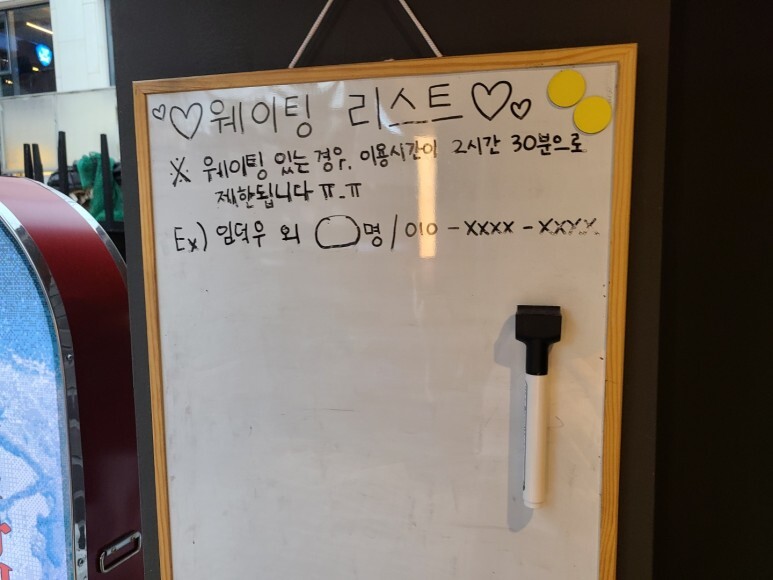 ♡♡웨이팅 리스트♡♡
※ 웨이팅 있는 경우, 이용시간이 2시간 30분으로
제한됩니다 ㅠ_ㅠ
Ex) 임덕우 외 ◯명 / 010 - XXXX - XXXX